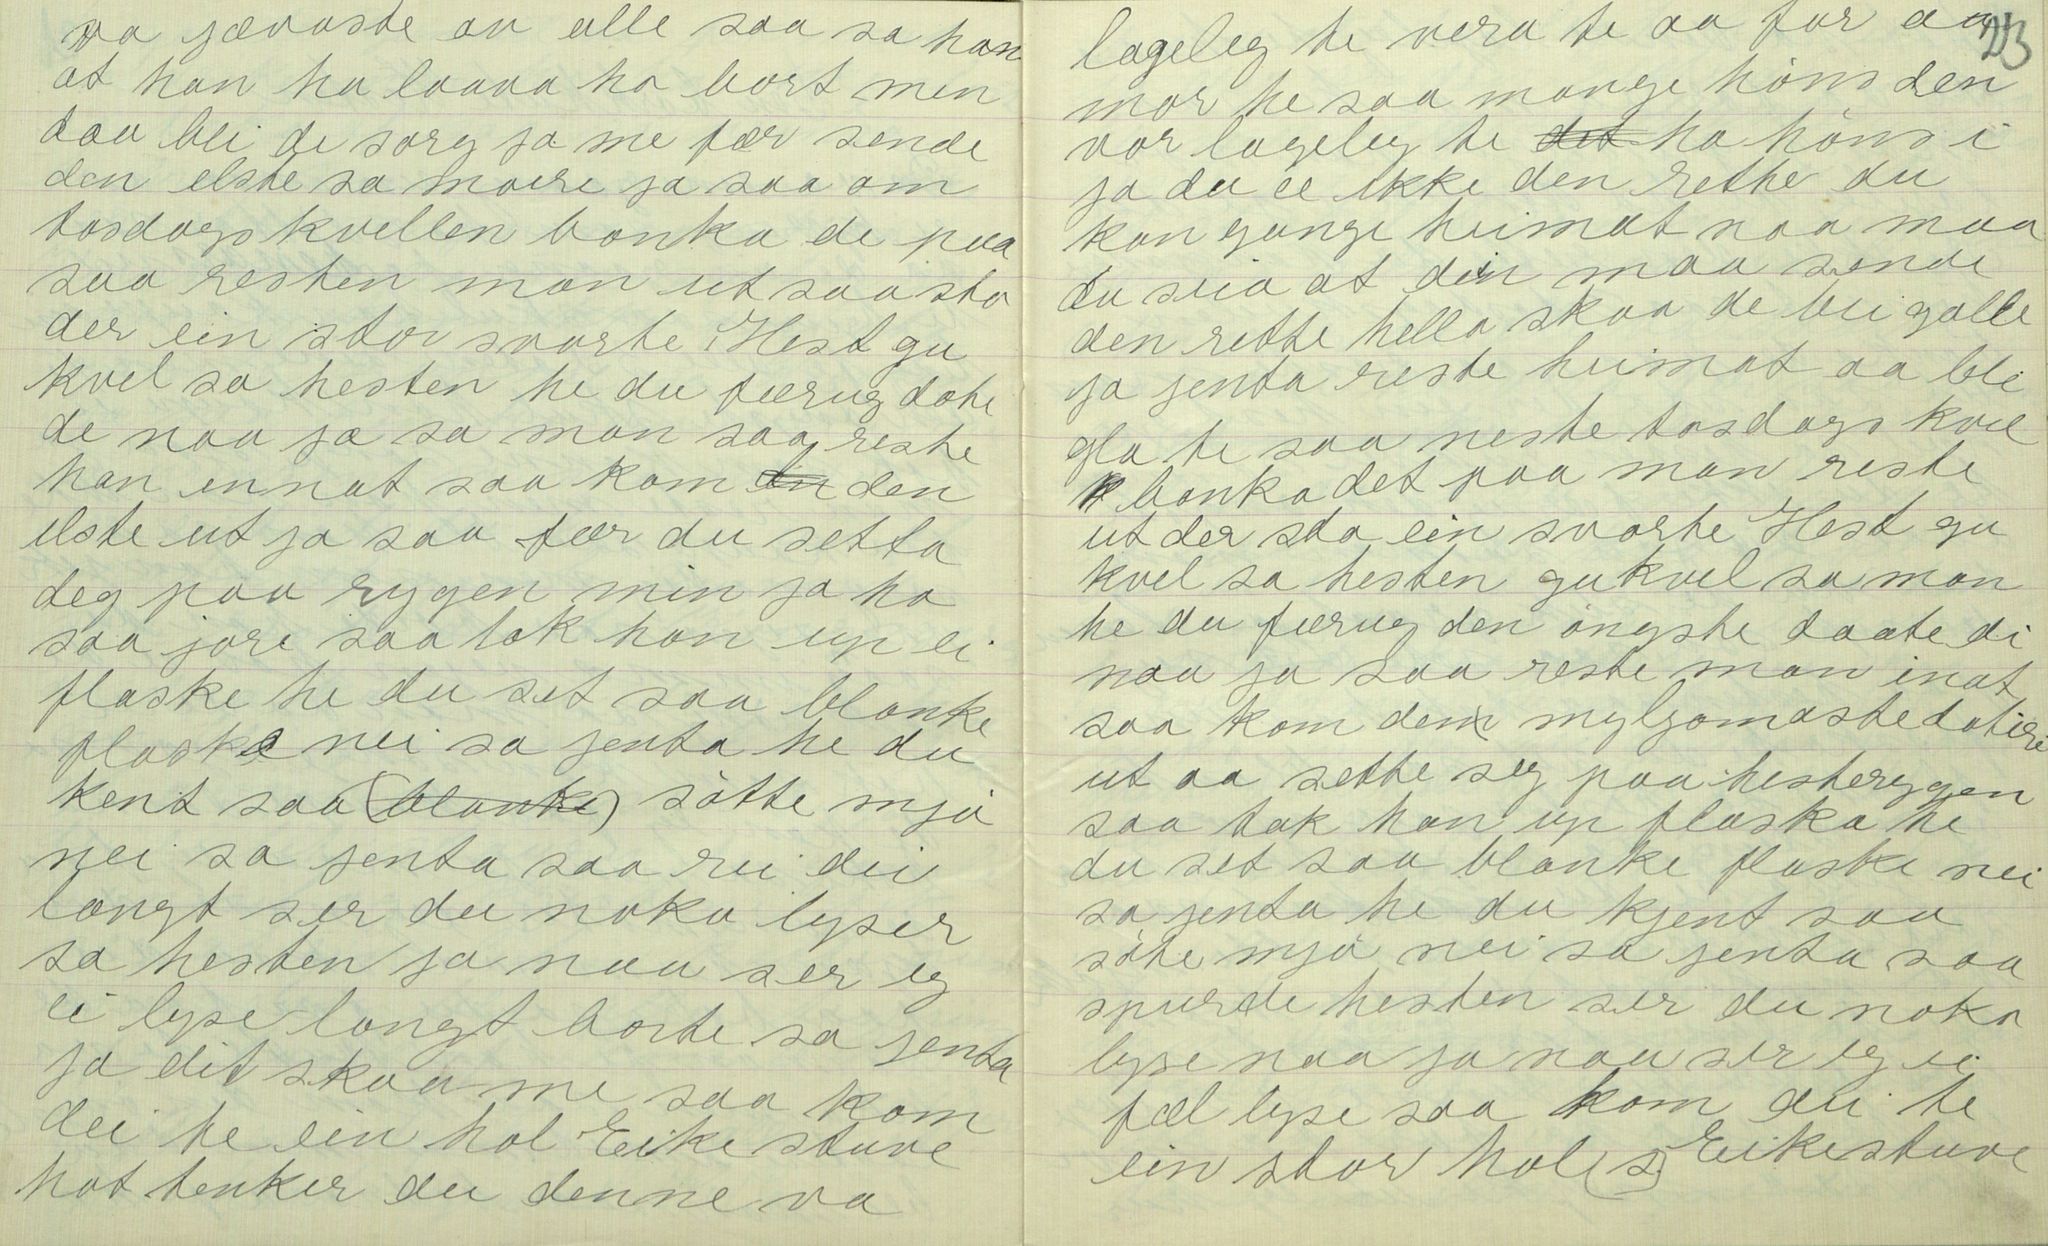 va jævaste av alle saa sa han
at han ha laava ha bort men
daa blei de sorg ja me fær sende
den elste sa moere ja saa om
tosdags kvellen banka de paa
saa resten man ut saa sto
der ein stor svarte Hest gu
kvel sa hesten he du færug dote
de naa ja sa man saa reste
han innat saa kom den
elste ut ja saa fær du setta
deg paa rygen min ja ho
saa jore saa tok han up ei
flaske he du set saa blanke
flaske nei sa jenta he du
kent saa (blanke) sötte mjö
nei sa jenta saa rei dei
langt ser du noko lyser
sa hesten ja naa ser eg
ei lyse langt borte sa jenta
ja dit skaa me saa kom
dei te ein hol Eike stuve
hot tenker du denne va
23
lageleg te vera te aa for aa
mor he saa mange höns den
var lageleg te det ha höns i
ja du æ ikke den rethe du
kan gange heimat naa maa
du seia at din maa sende
den rette hella skaa de bei galle
ja jenta reste heimat aa blei
gla te saa neste tosdags kvel
banka det paa man reste
ut der sto ein svarte Hest gu
kvel sa hesten gu kvel sa man
he du færug den öngste daate di
naa ja saa reste man inat
saa kom den myljomaste dotere
ut aa sette seg paa hesterygen
saa tok han up flaska he
du set saa blanke flaske nei
sa jenta he du kjent saa
söte mjö nei sa jenta saa
spurde hesten ser du noko
lyse naa ja naa ser eg ei
fæl lyse saa kom dei te
ein stor hol (s) Eikestuve